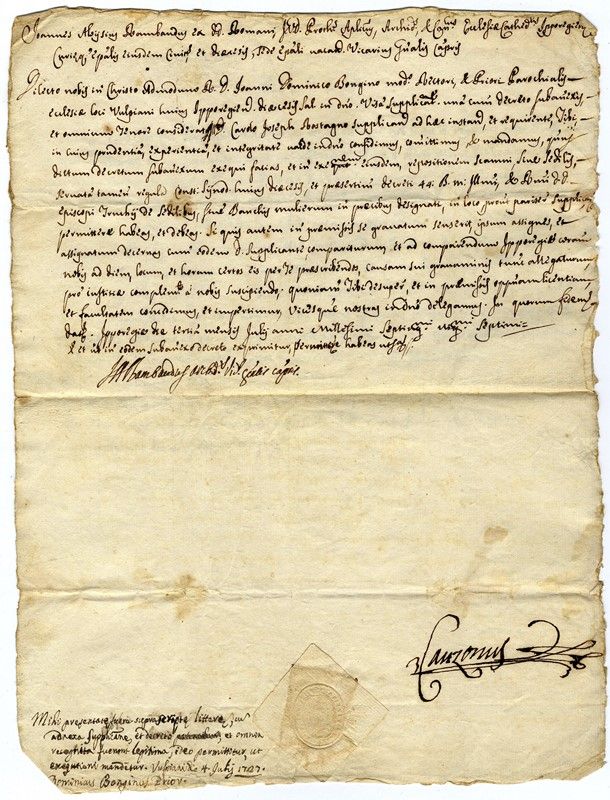 Joannes Aloysius Rambaudus ex DD. Romani, Proth. Aplicus, Archid. & Can. Ecclesiæ Cathed. Ipporegien.
Curiæq. Epalis eiusdem Civis et diœcesis, Sede Epali vacad. Vicarius Gnalis Capris
Dilecto nobis in Christo Admodum R. D. Joanni Dominico Bongino mod. Rectori, & Priori Parochialis
ecclesiæ loci Vulpiani huius Ipporegien. diœcesis sal. in dno. Viso supplicat. una cum decreto subannexis,
et omnium tenore considerat. Carolo Joseph Rostagno supplican. ad hæc instan. et requirente, Tibi,
in cuius prudentia, experientia, et integritate valde in dno confidimus, comittimus & mandamus, quat.
dictum decretum subannexum exequi facias, et in eiusdem, repositionem scanni sive sedilis,
servata tamen regula const. synod. huius diœcesis, et presertim decreti 44. B. m. Illmi, & Rmi D. D.
Episcopi Truchi de sedilibus, sive Banchis mulierum in præcibus designati, in loco
permittere habeas, et debeas. Si quis autem in præmissis se gravatum senserit, ipsum assignes, et
assignatum decernas cum eodem D. Supplicante compariturum, et ad comparendum Ipporegiæ coram
nobis ad diem, locum et horam certos eis per te præscribendos, causam sui gravaminis tunc allegaturum,
pro iustitiæ complem. a nobis suscipiendo. quoniam Tibi desuper, et in præmissis opportunam licentiam
et facultatem concedimus, et impertimur, Vicesque nostras in dno delegamus. In quorum fidem
dat. Ipporegiæ die tertia mensis Julij anni Millesimi Septing.mi septimi
& et ut in eodem subannexo decreto exprimitur, permittere habeas
JA Rambaudus Vic. Glis Capris.
Lanzonus
Mihi presentatæ fuere suprascriptæ litteræ, seu
adnexa supplicatione, et decreto et omnia
recognita fuerunt legitima, ideo permittitur, ut
executioni mandetur. Vulpiani 4 Julij 1727.
Dominicus Bonginus Prior.